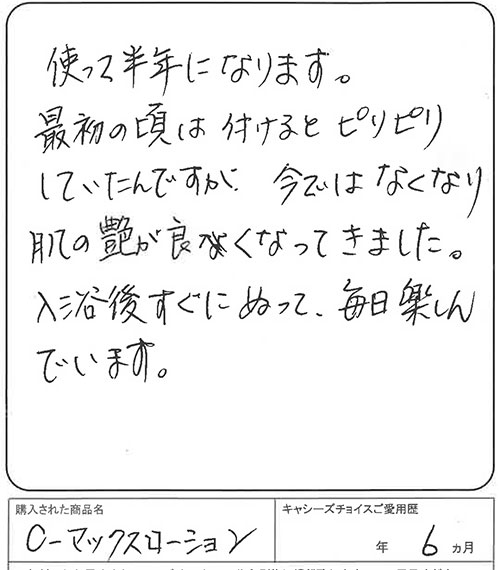 使って半年になります。
最初の頃は付けるとピリピリ
していたんですが、今ではなくなり
肌の艶が良くなってきました。
入浴後すぐにぬって、毎日楽しん
でいます。
購入された商品名
キャシーズチョイスご愛用歴
C-マックスローション
年 6 カ月